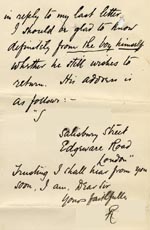 in reply to my last letter.
I should be glad to know
definitely from the boy himself
whether he still wishes to
return. His address is
as follows:-
5
Salisbury Street
Edgware Road
London"
Trusting I shall hear from you
soon, I am, Dear Sir
Yours faithfully